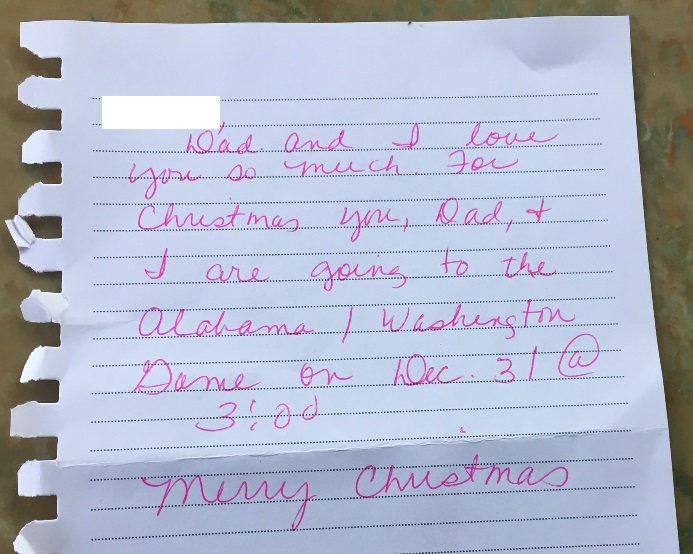 Dad and I love
you so much. For
Christmas you, Dad, +
I are going to the
Alabama / Washington
Game on Dec. 31 @
3:00
Merry Christmas